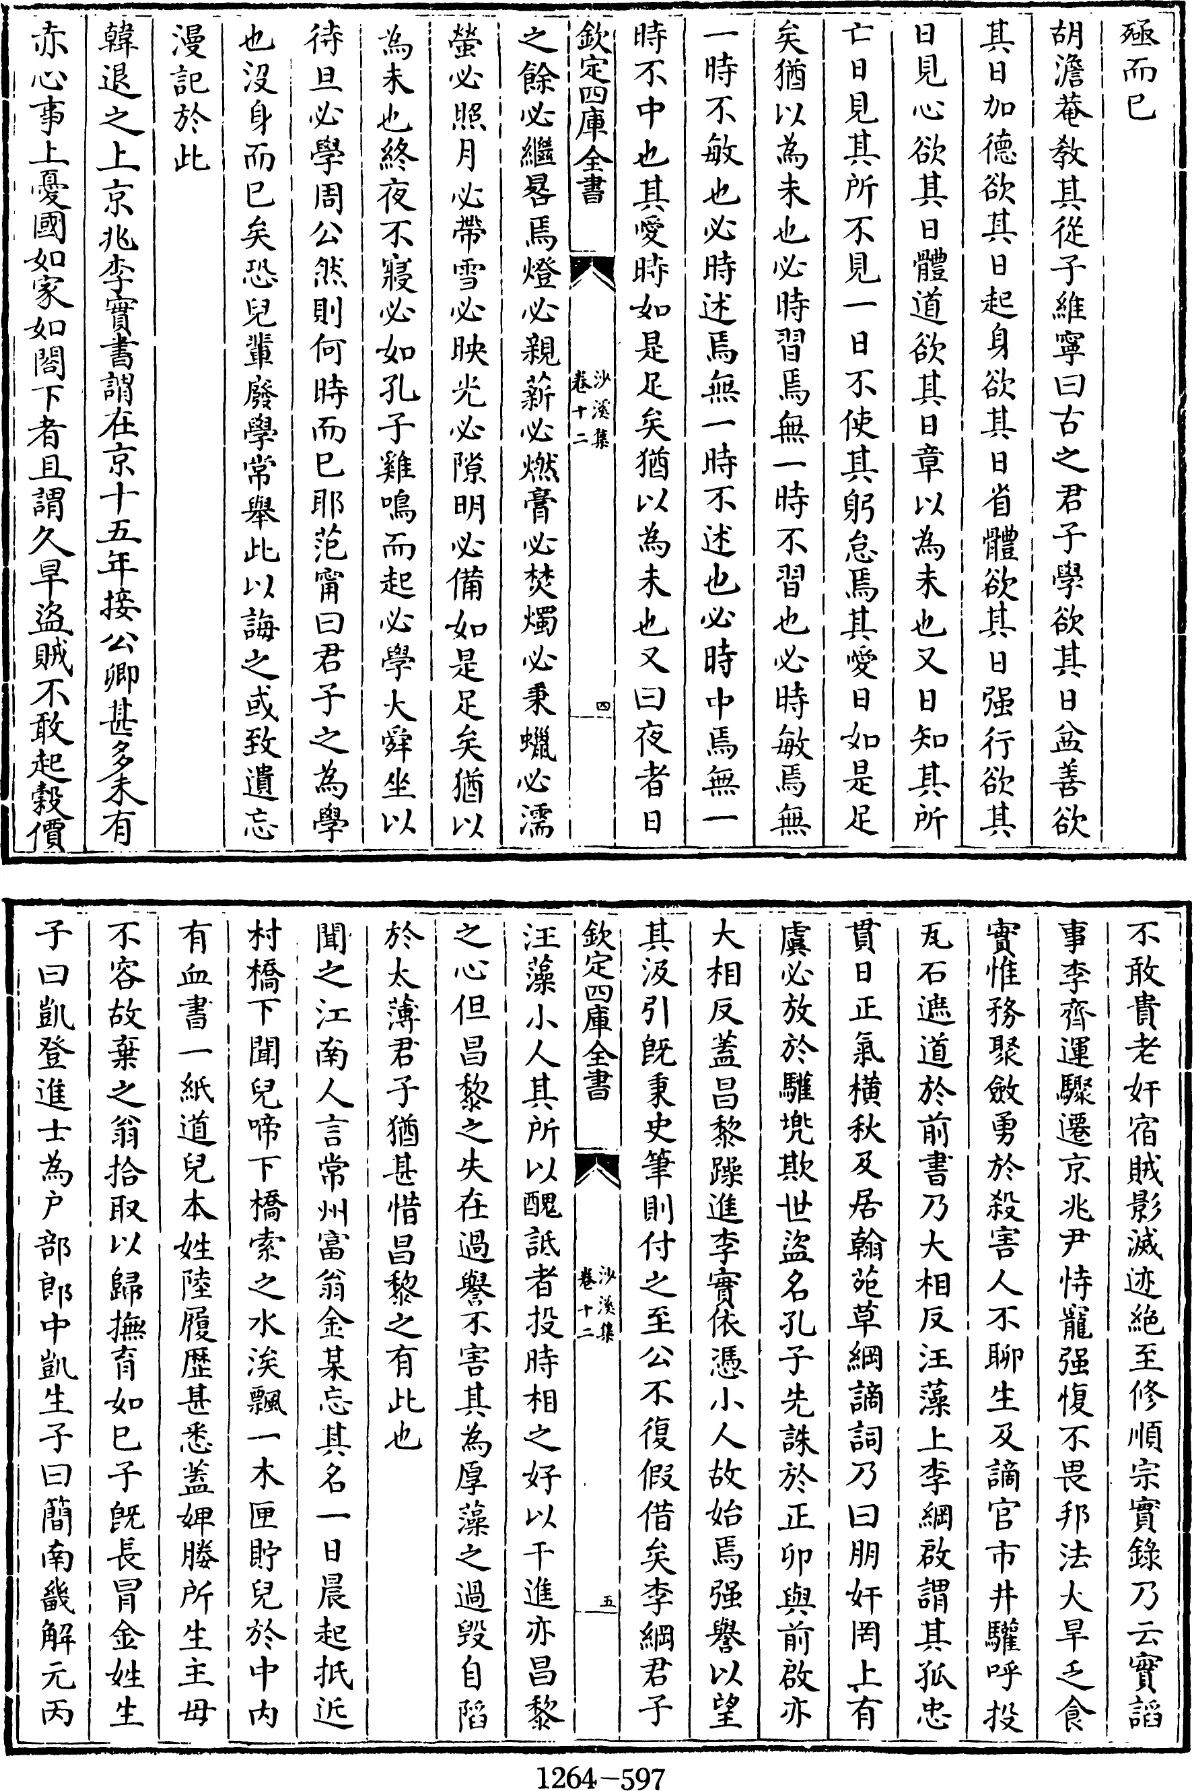 殛而已
胡澹菴教其從子維寧曰古之君子學欲其日益善欲
其日加德欲其日起身欲其日省體欲其日强行欲其
日見心欲其日體道欲其日章以為未也又日知其所
亡日見其所不見一日不使其躬怠焉其愛日如是足
矣猶以為未也必時習焉無一時不習也必時敏焉無
一時不敏也必時述焉無一時不述也必時中焉無一
時不中也其愛時如是足矣猶以為未也又曰夜者日
欽定四庫全書
沙溪集
卷十二
四
之餘必繼晷焉燈必親薪必燃膏必焚燭必秉蠟必濡
螢必照月必帶雪必映光必隙明必備如是足矣猶以
為未也終夜不寢必如孔子雞鳴而起必學大舜坐以
待旦必學周公然則何時而已耶范甯曰君子之為學
也沒身而已矣恐兒輩廢學常舉此以誨之或致遺忘
漫記於此
韓退之上京兆李實書謂在京十五年接公卿甚多未有
赤心事上憂國如家如閤下者且謂久旱盜賊不敢起穀價
不敢貴老奸宿賊影滅迹絶至修順宗實錄乃云實謟
事李齊運驟遷京兆尹恃寵强愎不畏邦法大旱乏食
實惟務聚斂勇於殺害人不聊生及謫官市井驩呼投
瓦石遮道於前書乃大相反汪藻上李綱啟謂其孤忠
貫日正氣橫秋及居翰苑草綱謫詞乃曰朋奸罔上有
虞必放於驩兠欺世盜名孔子先誅於正卯與前啟亦
大相反蓋昌黎躁進李實依憑小人故始焉强譽以望
其汲引旣秉史筆則付之至公不復假借矣李綱君子
欽定四庫全書
沙溪集
卷十二
五
汪藻小人其所以醜詆者投時相之好以干進亦昌黎
之心但昌黎之失在過譽不害其為厚藻之過毁自陷
於太薄君子猶甚惜昌黎之有此也
聞之江南人言常州富翁金某忘其名一日晨起抵近
村橋下聞兒啼下橋索之水涘飄一木匣貯兒於中内
有血書一紙道兒本姓陸履歴甚悉蓋婢媵所生主母
不容故棄之翁拾取以歸撫育如已子旣長冒金姓生
子曰凱登進士為户部郎中凱生子曰簡南畿解元丙
1264—597